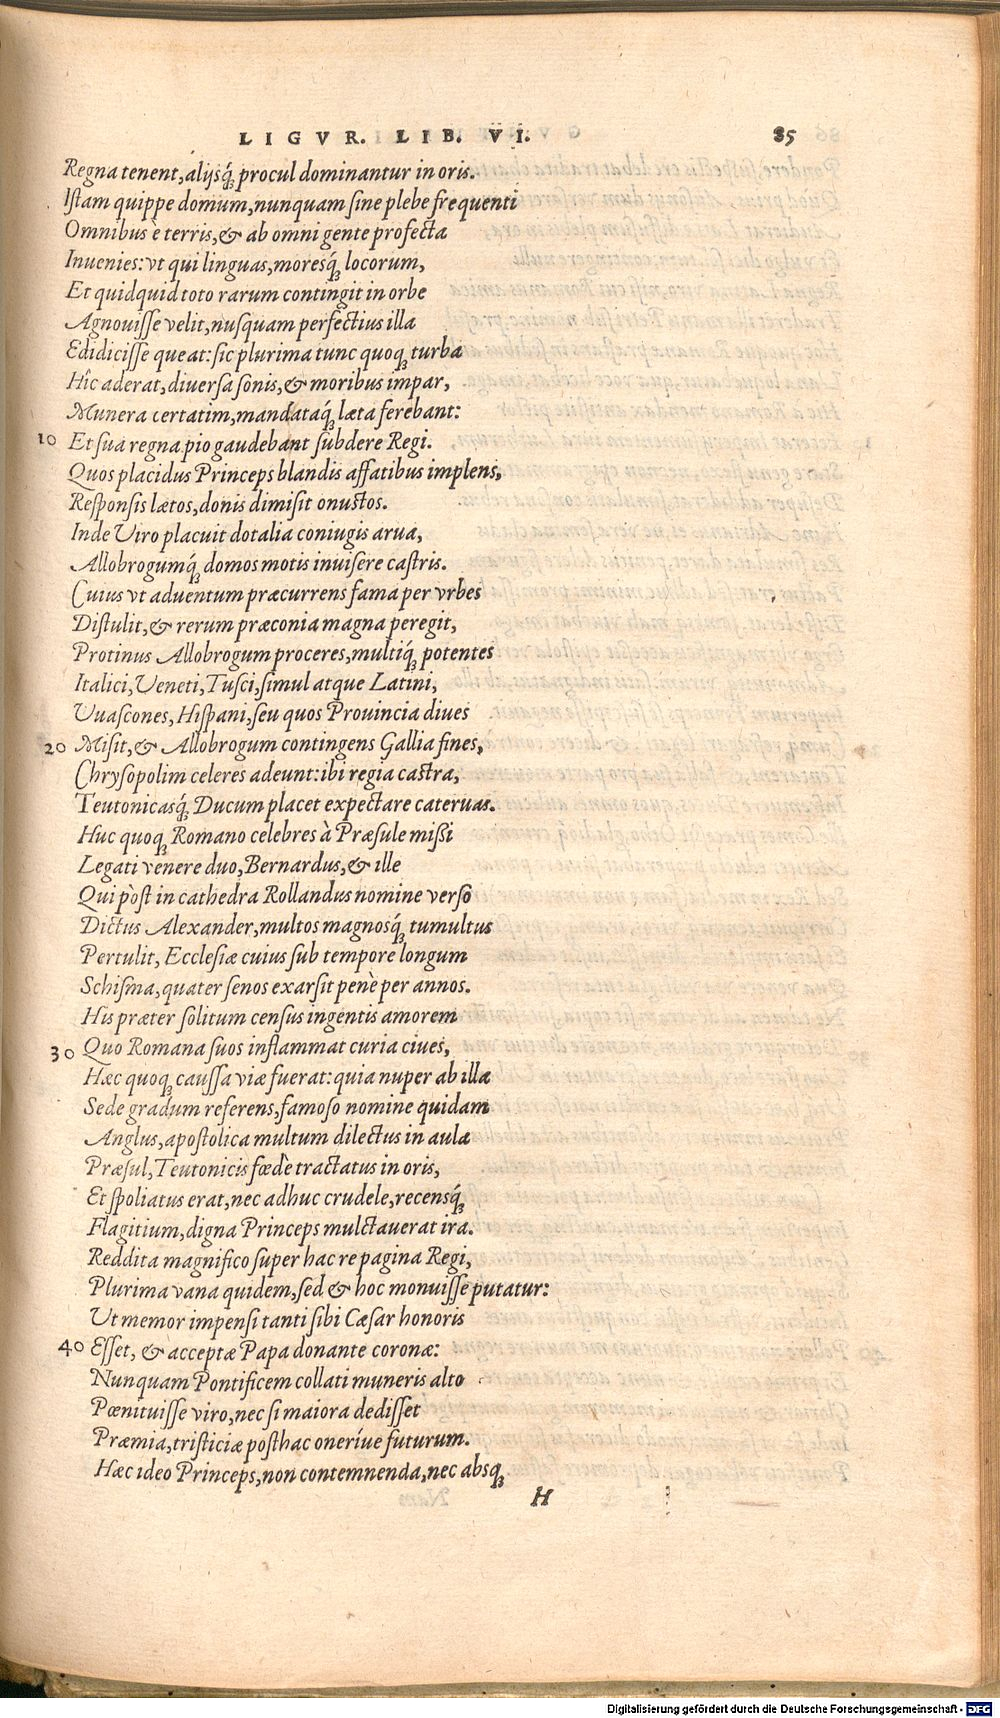 LIGVR. LIB. VI. 85
Regna tenent, alijsq́; procul dominantur in oris.
Istam quippe domum, nunquam sine plebe frequenti
Omnibus è terris, & ab omni gente profecta
Inuenies: vt qui linguas, moresq́; locorum,
Et quidquid toto rarum contingit in orbe
Agnouisse velit, nusquam perfectius illa
Edidicisse queat: sic plurima tunc quoq; turba
Hîc aderat, diuersa sonis, & moribus impar,
Munera certatim, mandataq́; læta ferebant:
10 Et sua regna pio gaudebant subdere Regi.
Quos placidus Princeps blandis affatibus implens,
Responsis lætos, donis dimisit onustos.
Inde Viro placuit dotalia coniugis arua,
Allobrogumq́; domos motis inuisere castris.
Cuius vt aduentum præcurrens fama per vrbes
Distulit, & rerum præconia magna peregit,
Protinus Allobrogum proceres, multiq́; potentes
Italici, Veneti, Tusci, simul atque Latini,
Vuascones, Hispani, seu quos Prouincia diues
20 Misit, & Allobrogum contingens Gallia fines,
Chrysopolim celeres adeunt: ibi regia castra,
Teutonicasq́; Ducum placet expectare cateruas.
Huc quoq; Romano celebres à Præsule missi
Legati venere duo, Bernardus, & ille
Qui pòst in cathedra Rollandus nomine verso
Dictus Alexander, multos magnosq́; tumultus
Pertulit, Ecclesiæ cuius sub tempore longum
Schisma, quater senos exarsit penè per annos.
His præter solitum census ingentis amorem
30 Quo Romana suos inflammat curia ciues,
Hæc quoq; caussa viæ fuerat: quia nuper ab illa
Sede gradum referens, famoso nomine quidam
Anglus, apostolica multum dilectus in aula
Præsul, Teutonicis fœdè tractatus in oris,
Et spoliatus erat, nec adhuc crudele, recensq́;
Flagitium, digna Princeps mulctauerat ira.
Reddita magnifico super hac re pagina Regi,
Plurima vana quidem, sed & hoc monuisse putatur:
Vt memor impensi tanti sibi Cæsar honoris
40 Esset, & acceptæ Papa donante coronæ:
Nunquam Pontificem collati muneris alto
Pœnituisse viro, nec si maiora dedisset
Præmia, tristiciæ posthac oneríue futurum.
Hæc ideo Princeps, non contemnenda, nec absq;
H
Digitalisierung gefördert durch die Deutsche Forschungsgemeinschaft - DFG